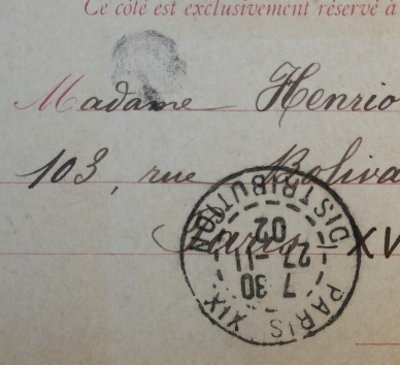 Ce côté est exclusivement réservé à
Madame Henrio
103, rue Boliva
Paris XV
PARIS XIX
7 30
27-11
02
DISTRIBUTION